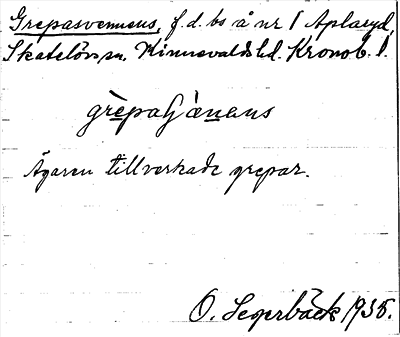 Grepasvennens, f.d. bs å nr 1 Aplaryd,
Skatelövs sn. Kinnevalds hd. Kronob. l.
grepaſjænens
Ägaren tillverkade grepar.
O. Segerbäck 1935.